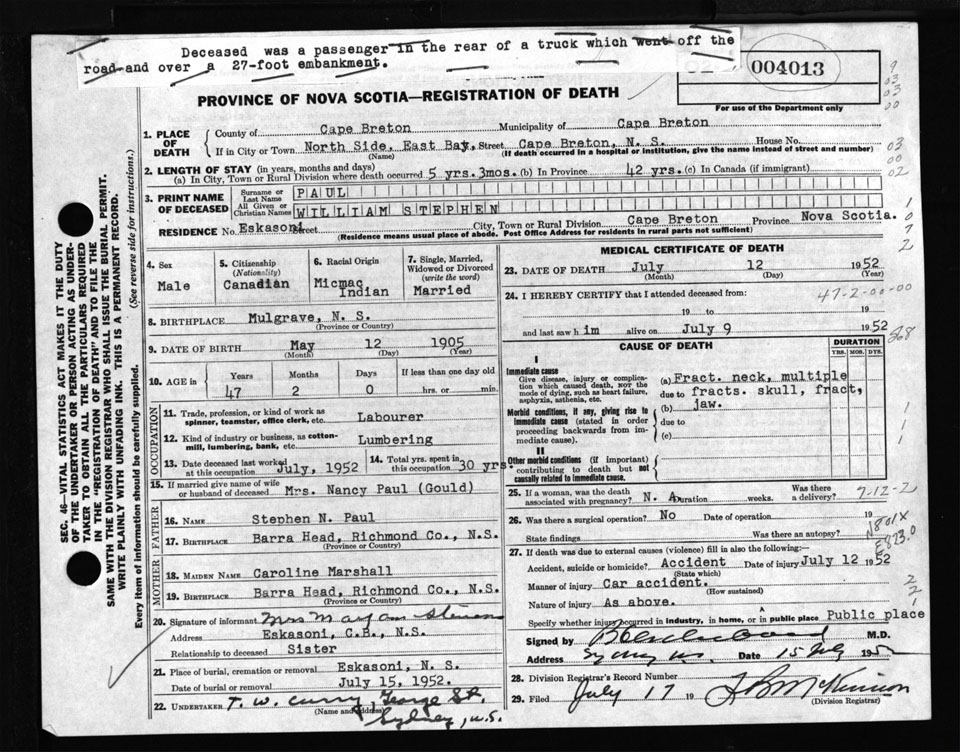 Deceased was a passenger in the rear of a truck which went off the
road and over a 27-foot embankment.
004013
For use of the Department only
PROVINCE OF NOVA SCOTIA—REGISTRATION OF DEATH
9
03
03
00
1. PLACE OF DEATH
County of Cape Breton Municipality of Cape Breton
If in City or Town North Side, East Bay, Street Cape Breton, N. S. House No.
(Name) (If death occurred in a hospital or institution, give the name instead of street and number)
03
00
02
2. LENGTH OF STAY (in years, months and days)
(a) In City, Town or Rural Division where death occurred 5 yrs. 3mos. (b) In Province 42 yrs. (c) In Canada (if immigrant)
3. PRINT NAME OF DECEASED
Surname or Last Name PAUL
All Given or Christian Names WILLIAM STEPHEN
RESIDENCE No. Eskasoni Street City, Town or Rural Division Cape Breton Province Nova Scotia.
(Residence means usual place of abode. Post Office Address for residents in rural parts not sufficient)
SEC. 46—VITAL STATISTICS ACT MAKES IT THE DUTY
OF THE UNDERTAKER OR PERSON ACTING AS UNDER-
TAKER TO OBTAIN ALL THE PARTICULARS REQUIRED
IN THE "REGISTRATION OF DEATH" AND TO FILE THE
SAME WITH THE DIVISION REGISTRAR WHO SHALL ISSUE THE BURIAL PERMIT.
WRITE PLAINLY WITH UNFADING INK. THIS IS A PERMANENT RECORD.
Every item of information should be carefully supplied. (See reverse side for instructions.)
4. Sex
Male
5. Citizenship
(Nationality)
Canadian
6. Racial Origin
Micmac
Indian
7. Single, Married,
Widowed or Divorced
(write the word)
Married
8. BIRTHPLACE Mulgrave, N. S.
(Province or Country)
9. DATE OF BIRTH May 12 1905
(Month) (Day) (Year)
10. AGE in
Years Months Days If less than one day old
47 2 0 hrs. or min.
OCCUPATION
11. Trade, profession, or kind of work as
spinner, teamster, office clerk, etc. Labourer
12. Kind of industry or business, as cotton-
mill, lumbering, bank, etc. Lumbering
13. Date deceased last worked
at this occupation July, 1952
14. Total yrs. spent in
this occupation 30 yrs.
15. If married give name of wife
or husband of deceased Mrs. Nancy Paul (Gould)
FATHER
16. NAME Stephen N. Paul
17. BIRTHPLACE Barra Head, Richmond Co., N.S.
(Province or Country)
MOTHER
18. MAIDEN NAME Caroline Marshall
19. BIRTHPLACE Barra Head, Richmond Co., N.S.
(Province or Country)
20. Signature of informant Mrs Maryann Stevens
Address Eskasoni, C.B., N.S.
Relationship to deceased Sister
21. Place of burial, cremation or removal Eskasoni, N. S.
Date of burial or removal July 15, 1952.
22. UNDERTAKER T. W. Curry, George St.
(Name and address) Sydney, N.S.
MEDICAL CERTIFICATE OF DEATH
23. DATE OF DEATH July 12 1952
(Month) (Day) (Year)
24. I HEREBY CERTIFY that I attended deceased from: 47-2-00-00
19 to 19
and last saw him alive on July 9 1952
568
CAUSE OF DEATH
DURATION
YRS. MOS. DYS.
I
Immediate cause
Give disease, injury or complica-
tion which caused death, not the
mode of dying, such as heart failure,
asphyxia, asthenia, etc.
(a) Fract. neck, multiple
due to fracts. skull, fract,
Morbid conditions, if any, giving rise to
immediate cause (stated in order
proceeding backwards from im-
mediate cause).
(b) jaw.
due to
(c)
II
Other morbid conditions (if important)
contributing to death but not
causally related to immediate cause.
25. If a woman, was the death
associated with pregnancy? N. A. Duration weeks. Was there
a delivery? 7-12-2
26. Was there a surgical operation? No Date of operation 19
State findings Was there an autopsy? N801X
E823.0
27. If death was due to external causes (violence) fill in also the following:—
Accident, suicide or homicide? Accident Date of injury July 12 1952
(State which)
Manner of injury Car accident.
(How sustained)
Nature of injury As above.
Specify whether injury occurred in industry, in home, or in public place Public place
Signed by M.D.
Address Sydney NS. Date 15 July 1952
28. Division Registrar's Record Number
29. Filed July 17 19
(Division Registrar)